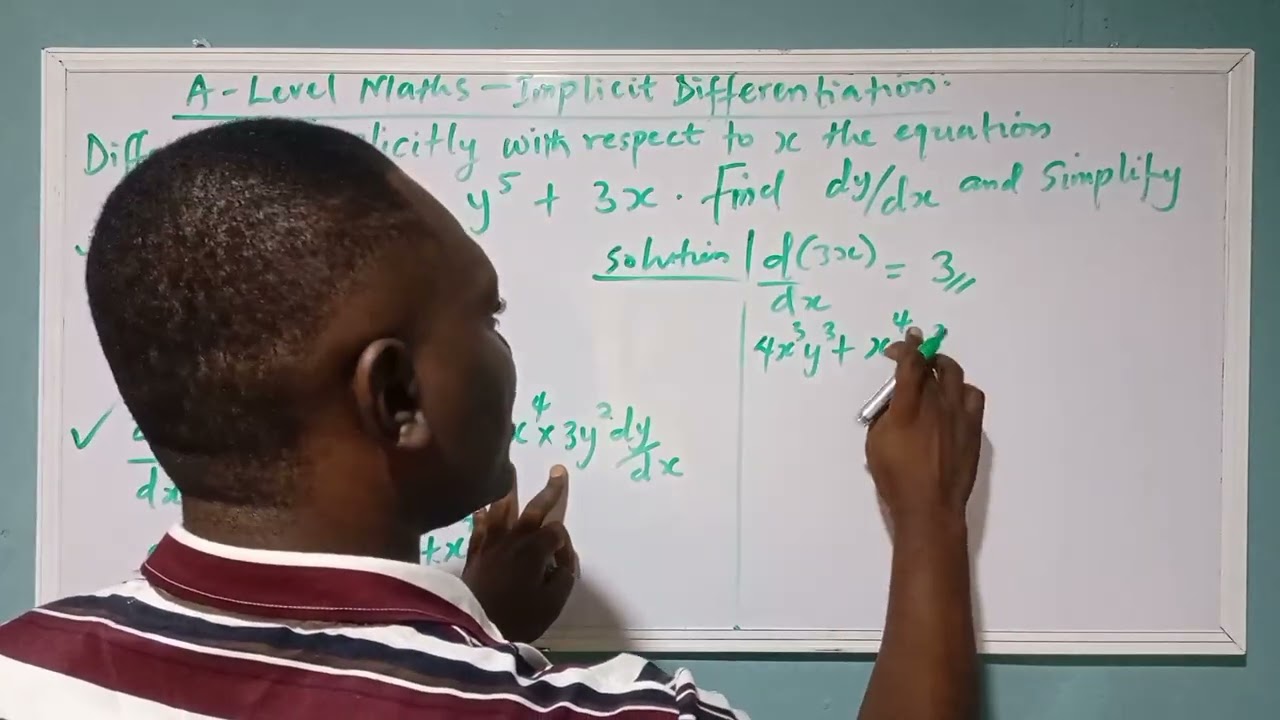 A-Level Maths - Implicit Differentiation:
Diff licitly with respect to x the equation
y⁵ + 3x. Find dy/dx and Simplify
solution
d/dx (3x) = 3
4x³y³ + x⁴
✓ dx x⁴ × 3y² dy/dx
+x